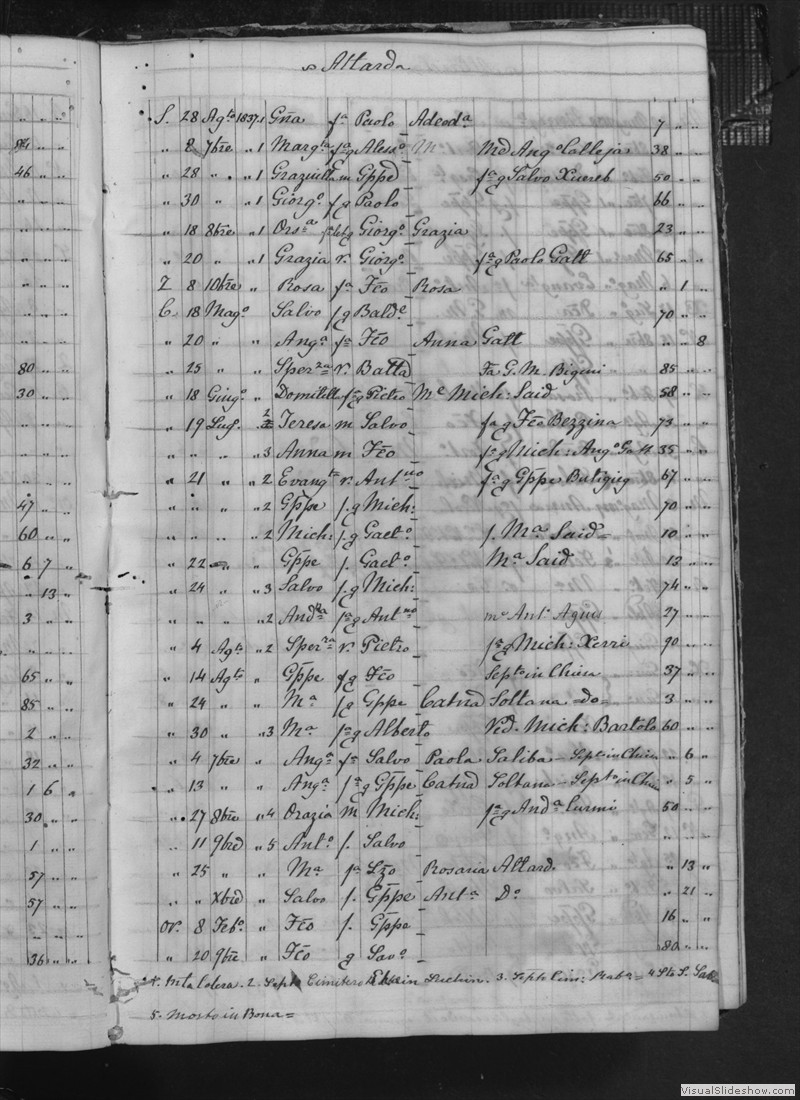 Attarda
S. 28 Agto 1837 1 Gña fa Paolo Adeoda 7 " "
" 8 7bre " 1 Marga fa g Alesso M Md Ango Calleja 38 " "
" 28 " " 1 Graziulla m Gppe fa g Salvo Xuereb 50 " "
" 30 " " 1 Giorgo f g Paolo 66 " "
" 18 8bre " 1 Orsa Giorgo Grazia 23 " "
" 20 " " 1 Grazia v. Giorgo fa g Paolo Gatt 65 " "
Z 8 10bre " Rosa fa Fco Rosa " 1 "
C 18 Mago " Salvo f g Balde 70 " "
" 20 " " Anga fa Fco Anna Gatt " " 8
" 25 " " Sperza v. Batta Fa G. M. Bigeni 85 " "
" 18 Giugo " Domitilla fa g Pietro Me Mich: Said 58 " "
" 19 Lug. " 2 Teresa m Salvo fa g Fco Bezzina 73 " "
" " " " 3 Anna m Fco fa g Mich: Ango 35 " "
" 21 " " 2 Evangta v. Antno fa g Gppe Butigieg 67 " "
" " " " 2 Gppe f. g Mich: 70 " "
" " " " 2 Mich: f. g Gaeto f. Ma Said 10 " "
" 22 " " Gppe f. Gaeto Ma Said 13 " "
" 24 " " 3 Salvo f. g Mich: 74 " "
" " " " 2 Andra fa g Antno mo Anta Agius 27 " "
" 4 Agto " 2 Sperza v. Pietro fa g Mich: Xerri 90 " "
" 14 Agto " Gppe f g Fco Septo in Chiesa 37 " "
" 24 " " Ma f g Gppe Catna Soltana do 3 " "
" 30 " " 3 Ma fa g Alberto Ved. Mich: Bartolo 60 " "
" 4 7bre " Anga fa Salvo Paola Saliba Septo in Chiesa " 6 "
" 13 " " Anga fa g Gppe Catna Soltana Septo in Chiesa " 5 "
" 27 8bre " 4 Orazia m Mich: fa g Anda Curmi 50 " "
" 11 9bre " 5 Anto f. Salvo
" 25 " " Ma fa Lzo Rosaria Attard. " 13 "
" " Xbre " Salvo f. Gppe Anta Do " 21 "
Or. 8 Febo " Fco f. Gppe 16 " "
" 20 9bre " Fco g Savo 80 " "
2. Septo Cimetero 3. Septo Cim: Rabto 4 Sto S.
5. Morto in Bona
84 " "
46 " "
80 " "
30 " "
47 " "
60 " "
6 7 "
" 13 "
3 " "
65 " "
85 " "
2 " "
32 " "
1 6 "
30 " "
1 " "
57 " "
57 " "
36 " "
VisualSlideshow.com